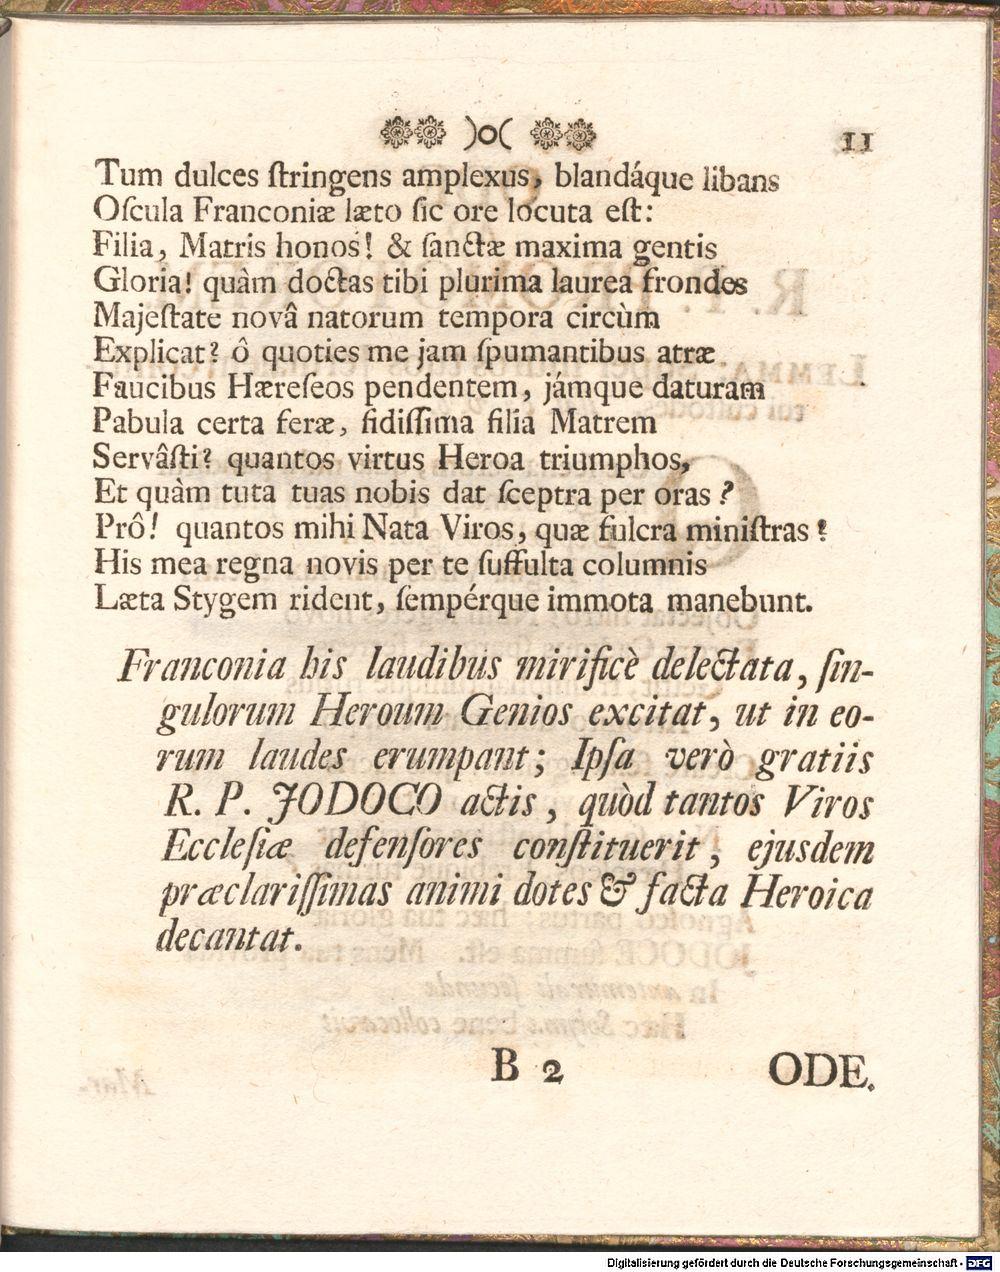 )o( 11
Tum dulces ſtringens amplexus, blandáque libans
Oſcula Franconiæ læto ſic ore locuta eſt:
Filia, Matris honos! & ſanctæ maxima gentis
Gloria! quàm doctas tibi plurima laurea frondes
Majeſtate novâ natorum tempora circùm
Explicat? ô quoties me jam ſpumantibus atræ
Faucibus Hæreſeos pendentem, jámque daturam
Pabula certa feræ, fidiſſima filia Matrem
Servâſti? quantos virtus Heroa triumphos,
Et quàm tuta tuas nobis dat ſceptra per oras?
Prô! quantos mihi Nata Viros, quæ fulcra miniſtras!
His mea regna novis per te ſuffulta columnis
Læta Stygem rident, ſempérque immota manebunt.
Franconia his laudibus mirificè delectata, ſin-
gulorum Heroum Genios excitat, ut in eo-
rum laudes erumpant; Ipſa verò gratiis
R. P. JODOCO actis, quòd tantos Viros
Eccleſiæ defenſores conſtituerit, ejusdem
præclariſſimas animi dotes & facta Heroica
decantat.
B 2 ODE.
Digitalisierung gefördert durch die Deutsche Forschungsgemeinschaft - DFG